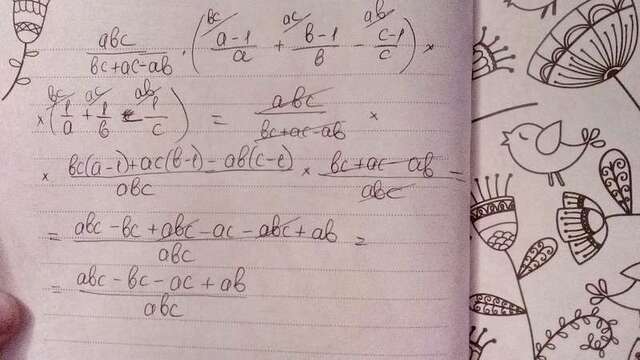 abc/(bc+ac-ab) · ( ᵇᶜ/ (a-1)/a + ᵃᶜ/ (b-1)/b - ᵃᵇ/ (c-1)/c ) ×
× ( ᵇᶜ/ 1/a + ᵃᶜ/ 1/b - ᵃᵇ/ 1/c ) = abc/(bc+ac-ab) ×
× (bc(a-1)+ac(b-1)-ab(c-1))/abc × (bc+ac-ab)/abc =
= (abc-bc+abc-ac-abc+ab)/abc =
= (abc-bc-ac+ab)/abc